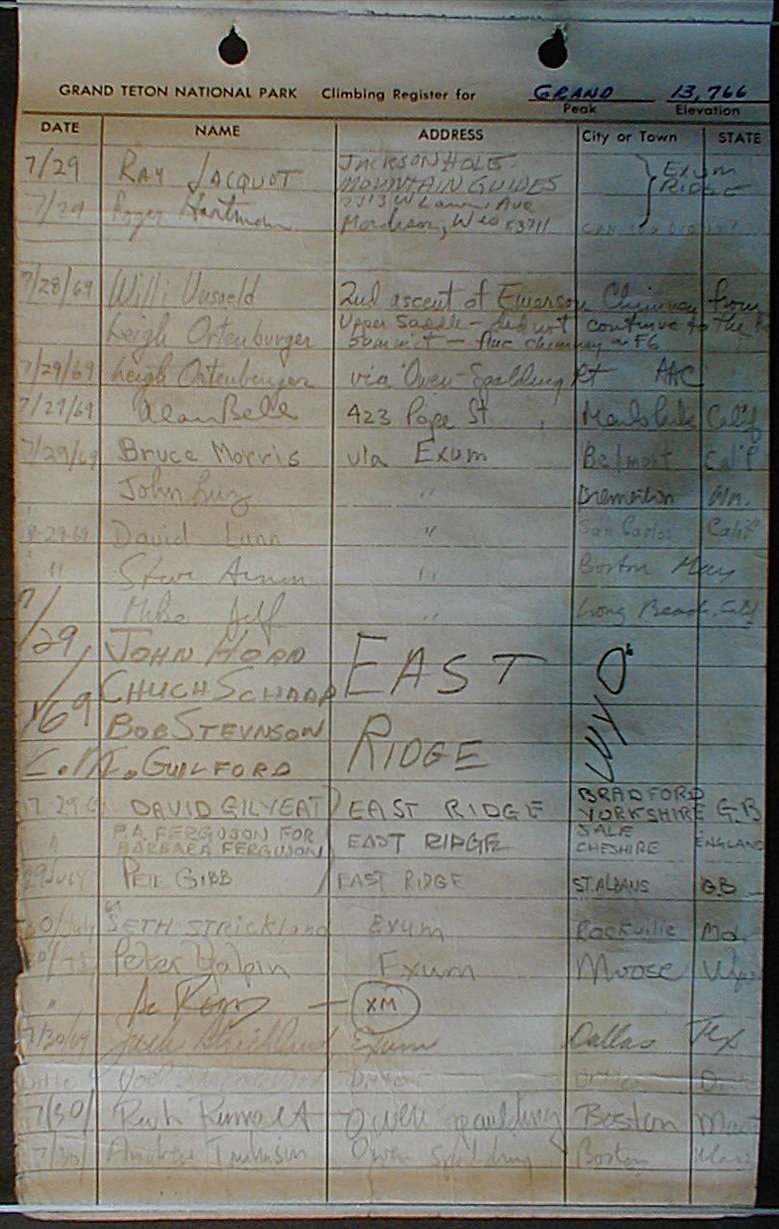 GRAND TETON NATIONAL PARK Climbing Register for GRAND 13,766
Peak Elevation
DATE NAME ADDRESS City or Town STATE
7/29 RAY JACQUOT JACKSON HOLE EXUM
MOUNTAIN GUIDES RIDGE
7/29 Roger Hartman Ave
Madison, Wis 53711
7/28/69 Willi Unsoeld 2nd ascent of Emerson Chimney from
Leigh Ortenburger Upper Saddle - did not continue to the
summit - fine chimney ~ F6
7/29/69 Leigh Ortenburger via Owen-Spalding Rt AAC
7/29/69 Alan Bell 423 Pope St. Menlo Park Calif
7/29/69 Bruce Morris via Exum Belmont Calif
John " Bremerton Wn.
-29-69 David Lunn " San Carlos Calif
" Steve " Boston
Mike " Long Beach, Calif
7/29/69 JOHN HORD EAST WYO
CHUCH SCHAAP
BOB STEVNSON RIDGE
C.M. GUILFORD
7-29-69 DAVID GILYEAT EAST RIDGE BRADFORD
YORKSHIRE G.B
" P.A. FERGUSON FOR EAST RIDGE SALE ENGLAND
BARBARA FERGUSON CHESHIRE
29 July PETE GIBB EAST RIDGE ST ALBANS G.B
30/July SETH Strickland Exum Rockville Md.
Peter Exum Moose
" — XM
7/30/69 Strickland Exum Dallas Tex
Ditto
7/30/ Owen Spaulding Boston
7/30/ Andrew Owen Spaulding Boston Mass